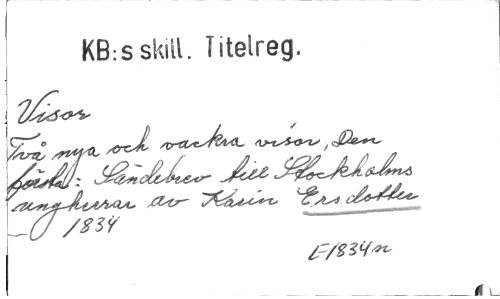 KB:s skill. Titelreg.
Visor
Två nya och vackra visor, Den
första: Sändebrev till Stockholms
ungherrar av Karin Ersdotter
— 1834
E1834n